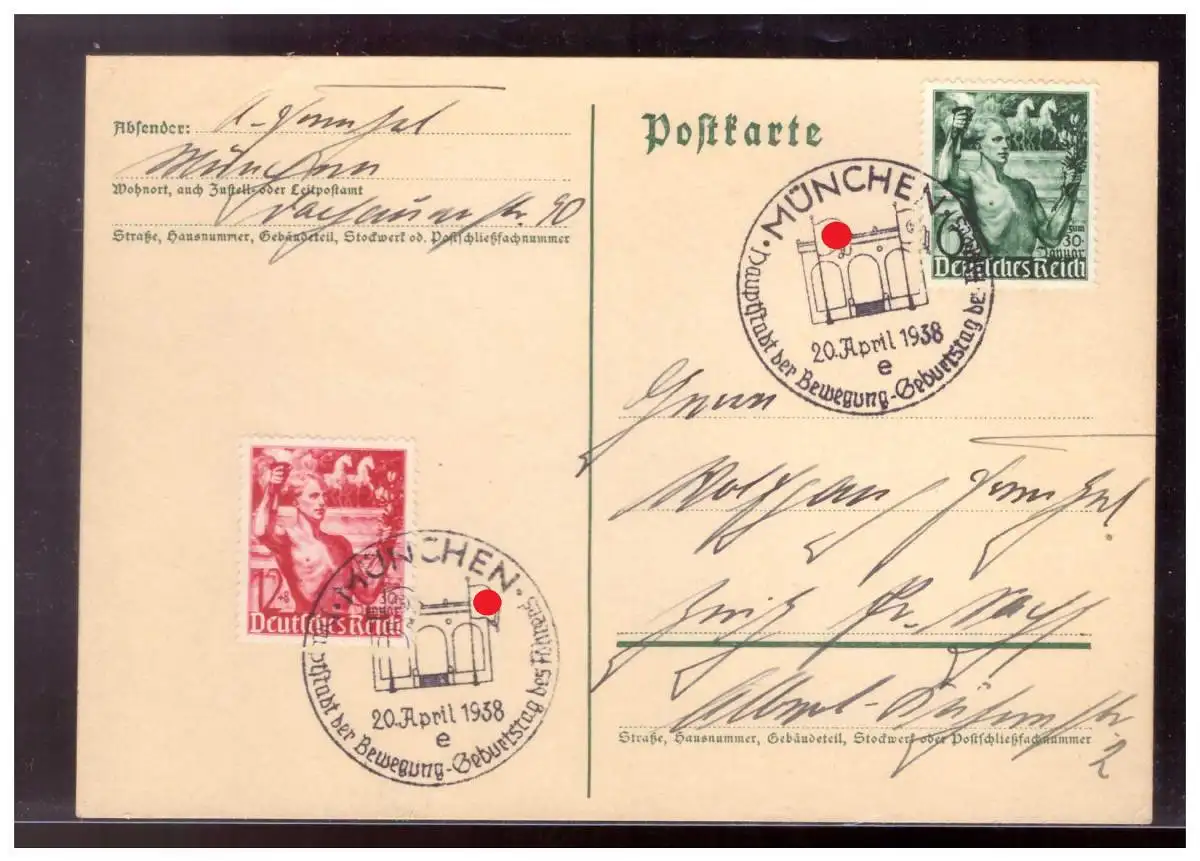 Absender:
München
Wohnort, auch Zustell- oder Leitpostamt
Dachauerstr. 90
Straße, Hausnummer, Gebäudeteil, Stockwerk od. Postschließfachnummer
Postkarte
6
zum
30.
Januar
Deutsches Reich
MÜNCHEN
20. April 1938
e
Hauptstadt der Bewegung - Geburtstag des
Herrn
Wolfgang
Straße, Hausnummer, Gebäudeteil, Stockwerk oder Postschließfachnummer
2
12
+8
30.
Deutsches Reich
MÜNCHEN
20. April 1938
e
Hauptstadt der Bewegung - Geburtstag des Führers